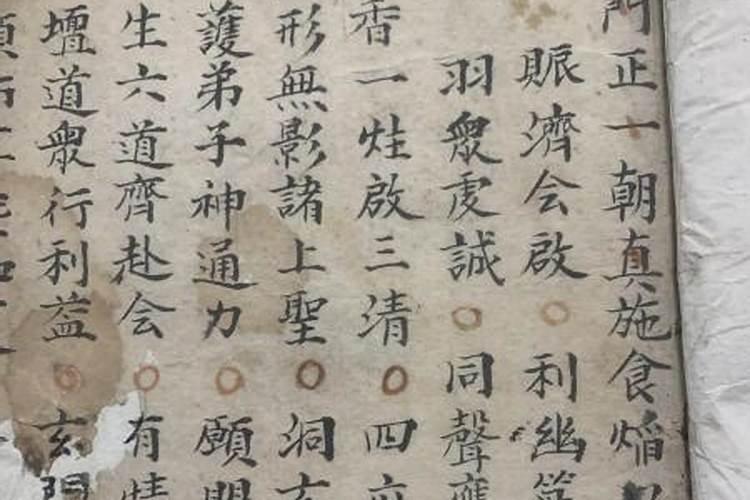 門正一朝真施食焰
賑濟会啟○利幽
羽衆虔誠○同聲應
香一炷啟三清○四
形無影諸上聖○洞玄
護弟子神通力○願
生六道齊赴会○有情
壇道衆行利益○玄門